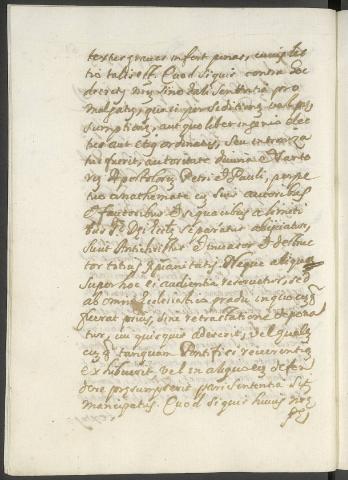 texter graves infert pœnas, cuius lec
tio talis est. Quod siquis contra hoc
decretũ nrũ sinodali sententia pro
mulgatũ, qui si per seditionẽ vel prę
sumptionẽ, aut quolibet ingenio elec
tus aut etiã ordinatus, seu intronza
tus fuerit, autoritate divina et Sancto
rũ Apostolorũ Petri et Pauli, perpe
tuo anathemate cũ suis autoribus
et fautoribus et sequacibus a limini
bus Sce Dei Ecclie separatus abijciatur,
sicut Antichristus et invasor et destruc
tor totius Xpianitatis. Neque aliqua
super hoc ei audientia reservetur, sed
ab omni Ecclesiastico gradu in quocũq
fuerat prius, sine retractatione depona
tur, cui quisquis adheserit, vel qualẽ
cuq tanquam Pontifici reverentiã
exhibuerit vel in aliquo eũ defen
dere pręsumpserit pari sententia sit
mancipatus. Quod siquis huius nrę